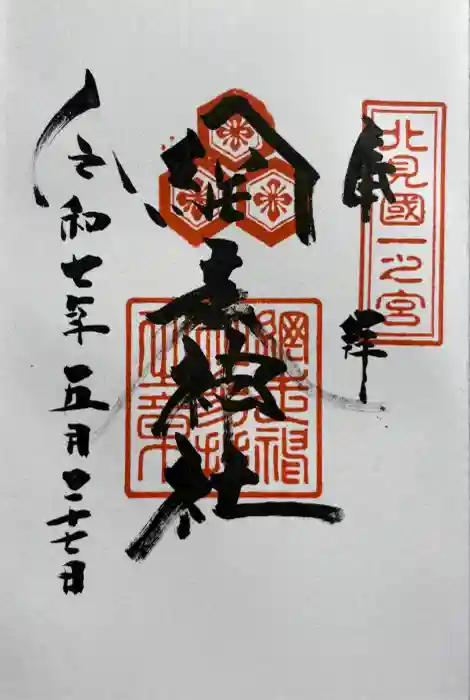 奉拝
北見國一之宮
網走神社
網走神
令和七年五月二十七日